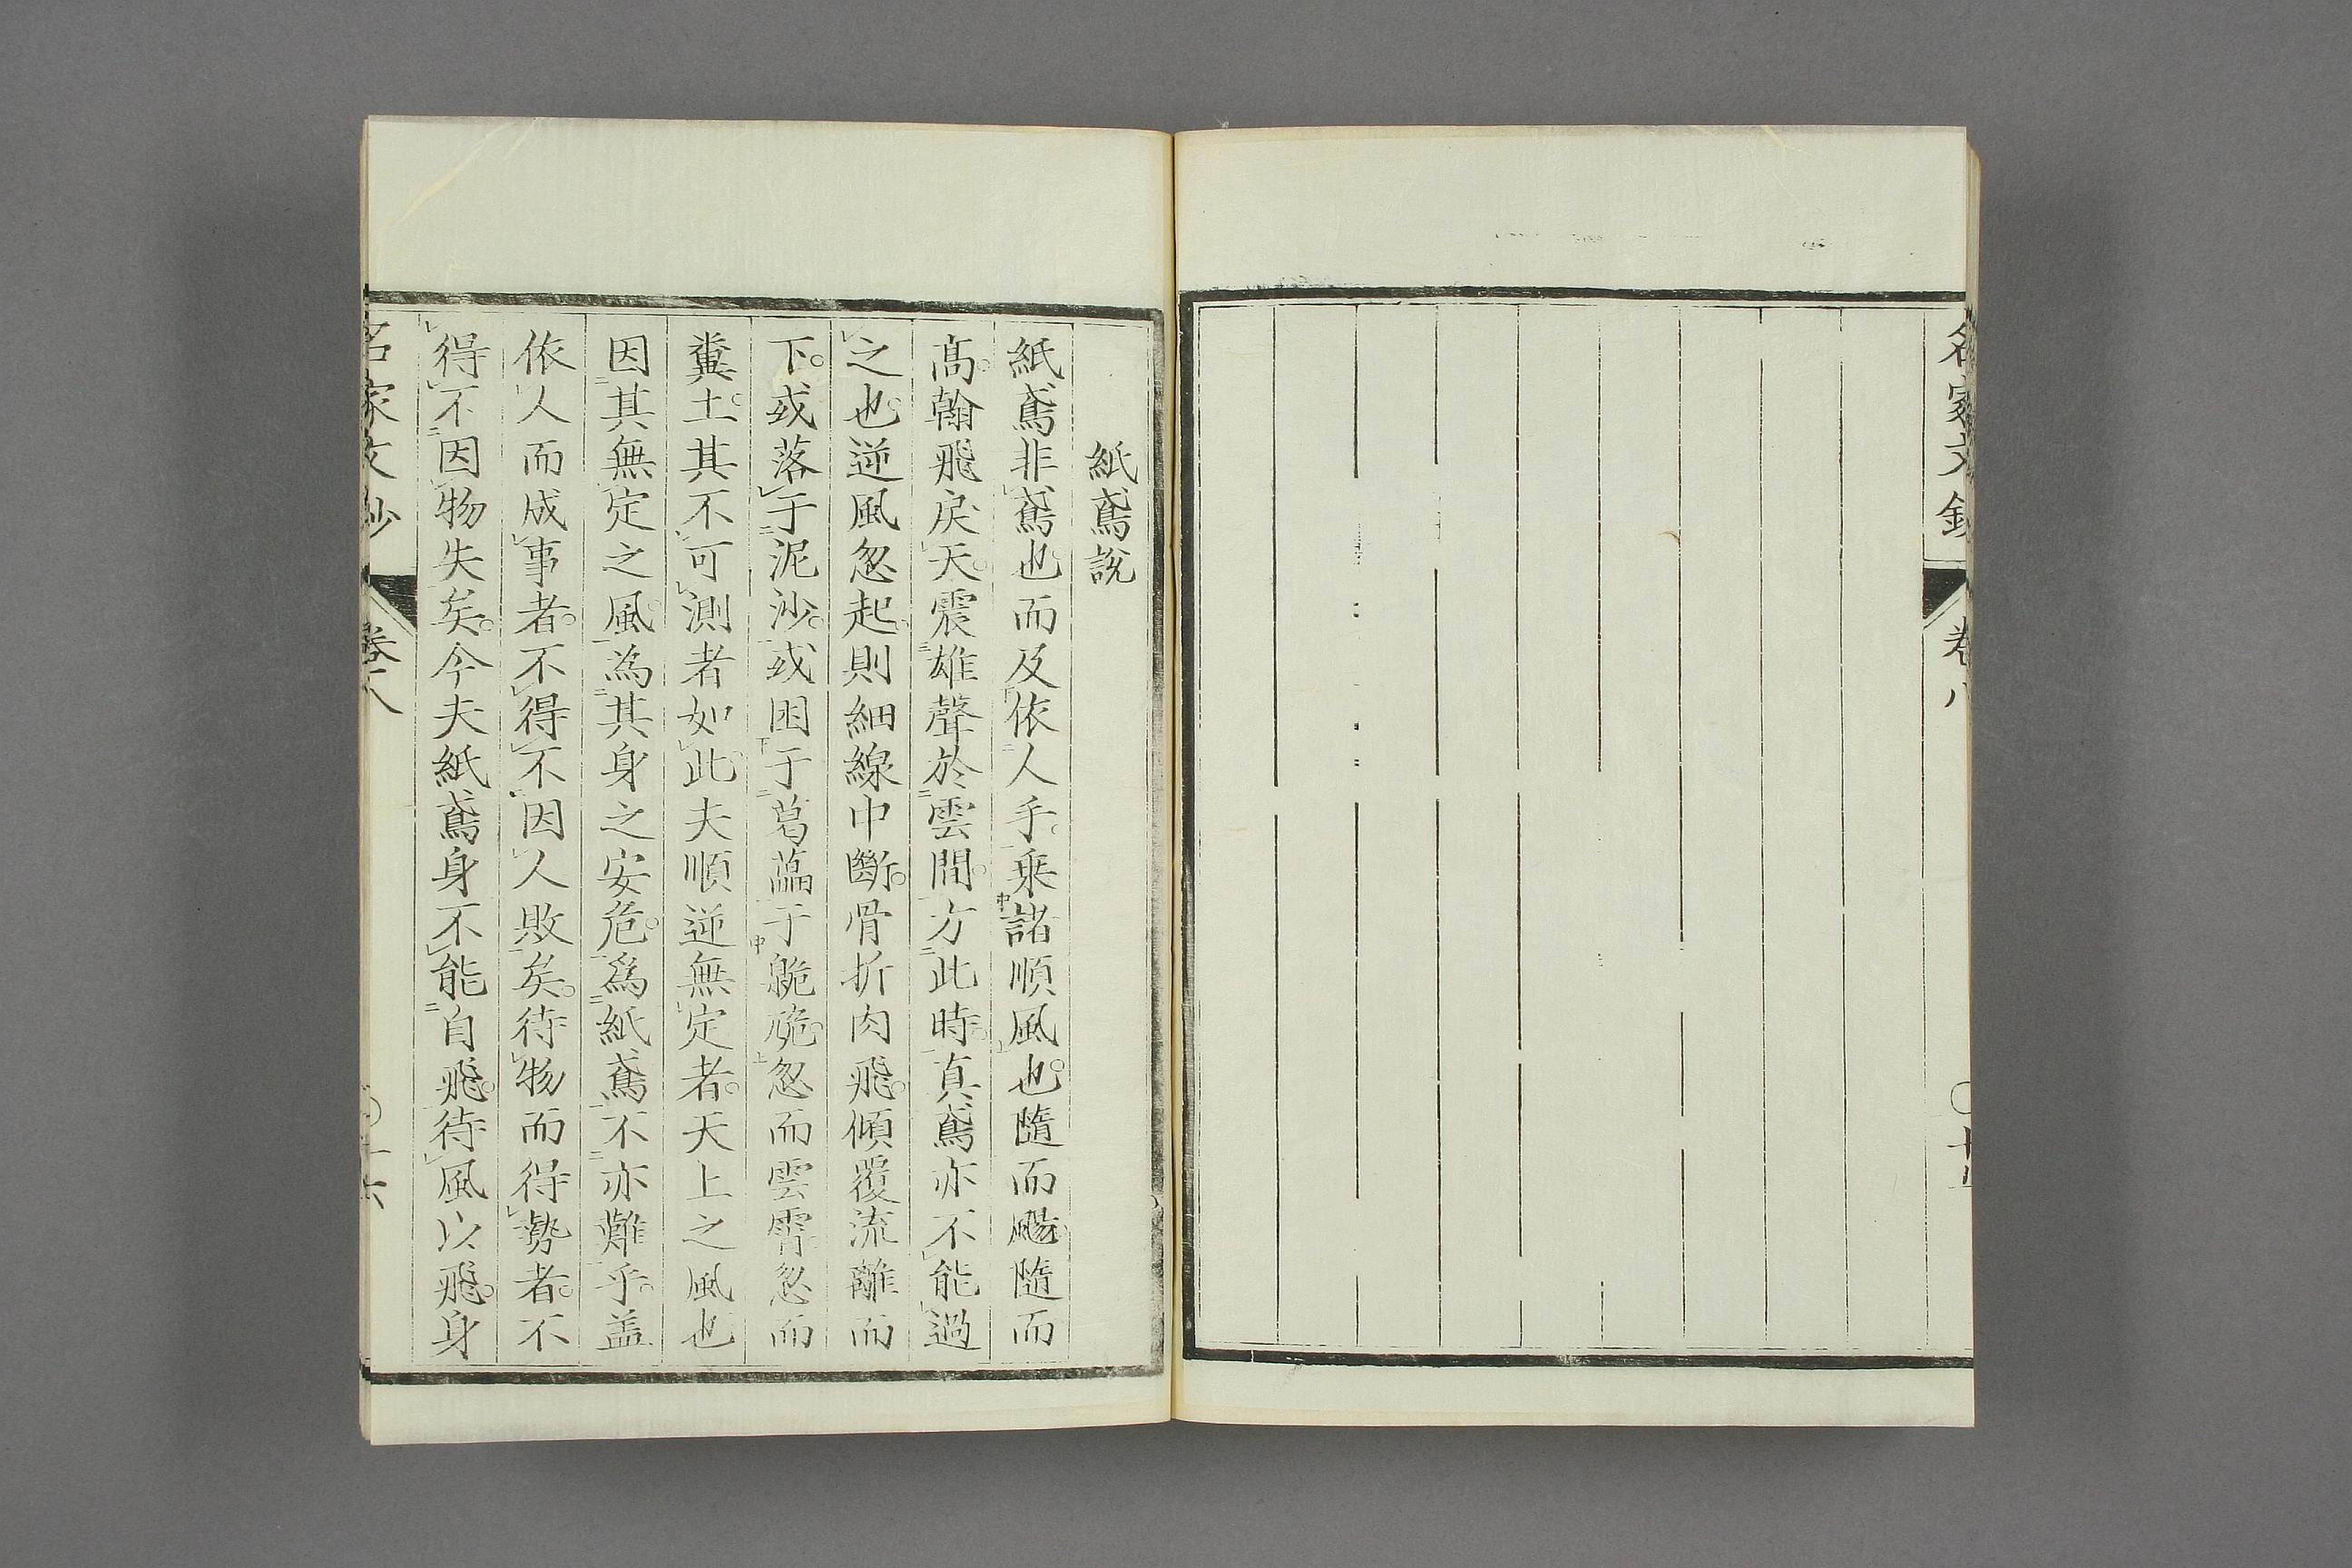 名家文鈔
卷八
紙鳶說
紙鳶非鳶也而及依人手乗諸順風也隨而颺隨而
高翰飛戾天震雄聲於雲間方此時真鳶亦不能過
之也逆風忽起則細線中斷骨折肉飛傾覆流離而
下或落于泥沙或困于葛藟于臲卼忽而雲霄忽而
糞土其不可測者如此夫順逆無定者天上之風也
因其無定之風為其身之安危爲紙鳶不亦難乎盖
依人而成事者不得不因人敗矣待物而得勢者不
得不因物失矣今夫紙鳶身不能自飛待風以飛身
名家文鈔
卷八
十六